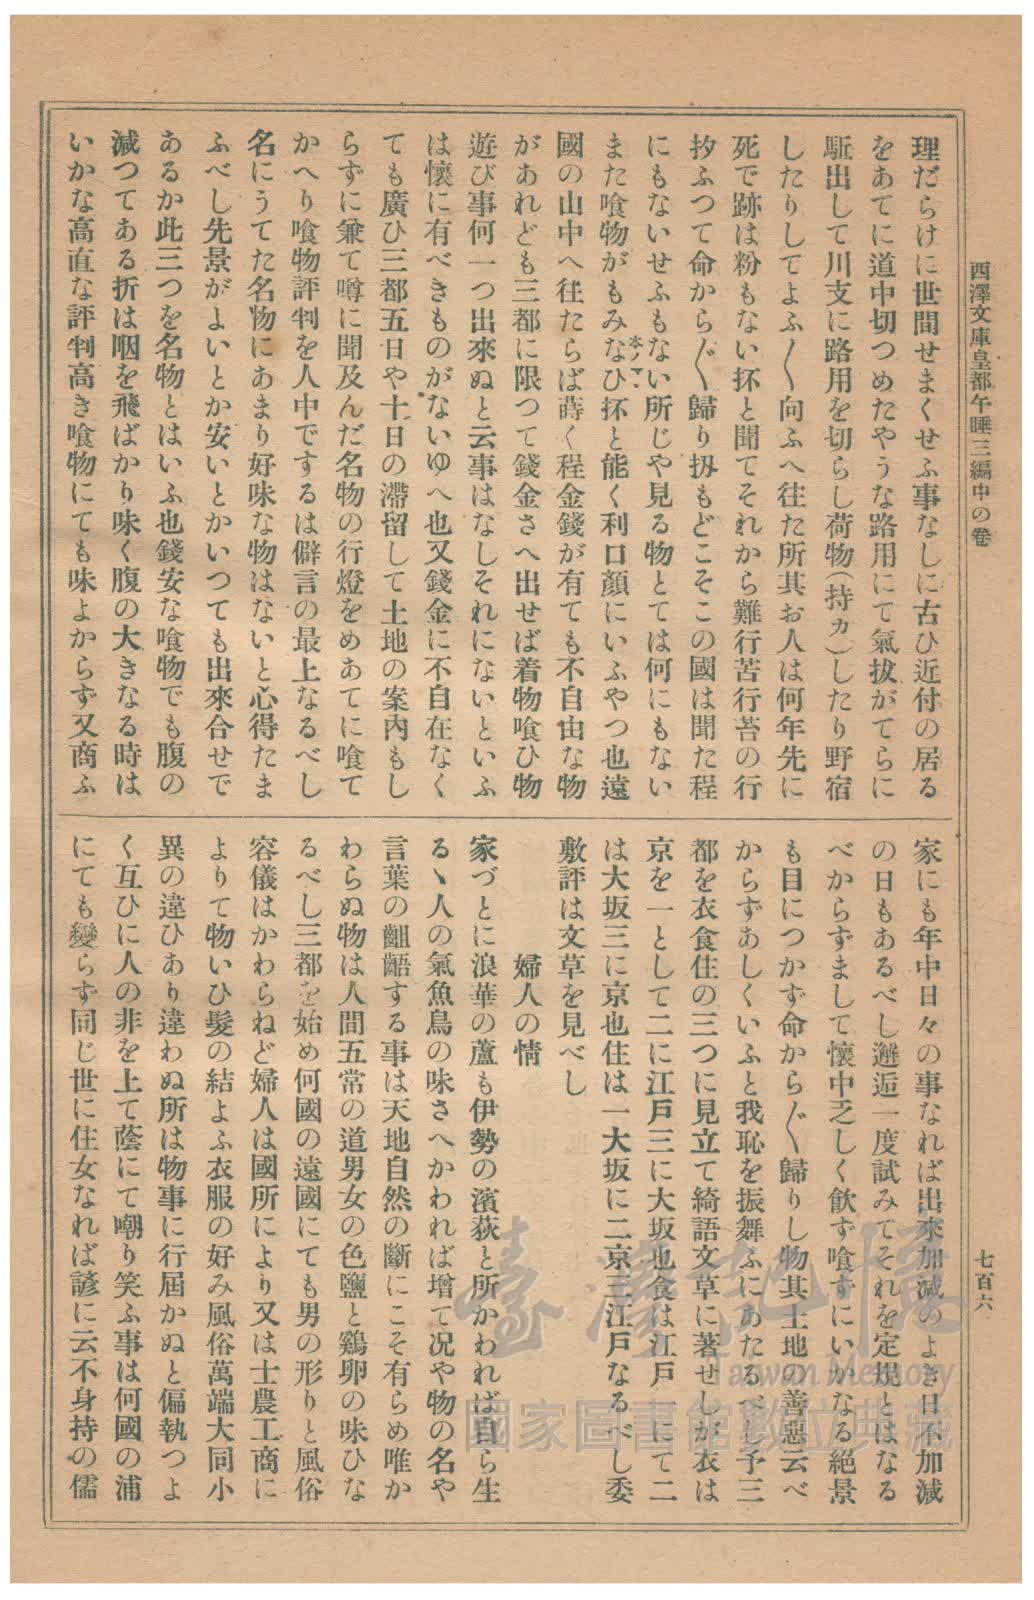 西澤文庫皇都午睡三編中の卷
七百六
理だらけに世間せまくせふ事なしに古ひ近付の居る
をあてに道中切つめたやうな路用にて氣拔がてらに
駈出して川支に路用を切らし荷物(持カ)したり野宿
したりしてよふ〱向ふへ往た所其お人は何年先に
死で跡は粉もない抔と聞てそれから難行苦行苔の行
抄ふつて命から〲歸り扨もどこそこの國は聞た程
にもないせふもない所じや見る物とては何にもない
また喰物がもみなひ抔と能く利口顏にいふやつ也遠
本ノマヽ
國の山中へ往たらば蒔く程金錢が有ても不自由な物
があれども三都に限つて錢金さへ出せば着物喰ひ物
遊び事何一つ出來ぬと云事はなしそれにないといふ
は懷に有べきものがないゆへ也又錢金に不自在なく
ても廣ひ三都五日や十日の滯留して土地の案內もし
らずに兼て噂に聞及んだ名物の行燈をめあてに喰て
かへり喰物評判を人中でするは僻言の最上なるべし
名にうてた名物にあまり好味な物はないと心得たま
ふべし先景がよいとか安いとかいつても出來合せで
あるか此三つを名物とはいふ也錢安な喰物でも腹の
減つてある折は咽を飛ばかり味く腹の大きなる時は
いかな高直な評判高き喰物にても味よからず又商ふ
家にも年中日々の事なれば出來加減のよき日不加減
の日もあるべし邂逅一度試みてそれを定規とはなる
べからずまして懷中乏しく飮ず喰ずにいかなる絕景
も目につかず命から〲歸りし物其土地の善惡云べ
からずあしくいふと我恥を振舞ふにあたるべし予三
都を衣食住の三つに見立て綺語文草に著せしが衣は
京を一として二に江戶三に大坂也食は江戶一にて二
は大坂三に京也住は一大坂に二京三江戶なるべし委
敷評は文草を見べし
婦人の情
家づとに浪華の蘆も伊勢の濱荻と所かわれば自ら生
るヽ人の氣魚鳥の味さへかわれば增て况や物の名や
言葉の齟齬する事は天地自然の斷にこそ有らめ唯か
わらぬ物は人間五常の道男女の色鹽と鷄卵の味ひな
るべし三都を始め何國の遠國にても男の形りと風俗
容儀はかわらねど婦人は國所により又は士農工商に
よりて物いひ髮の結よふ衣服の好み風俗萬端大同小
異の違ひあり違わぬ所は物事に行屆かぬと偏執つよ
く互ひに人の非を上て蔭にて嘲り笑ふ事は何國の浦
にても變らず同じ世に住女なれば諺に云不身持の儒
臺灣記憶
Taiwan Memory
國家圖書館數位典藏